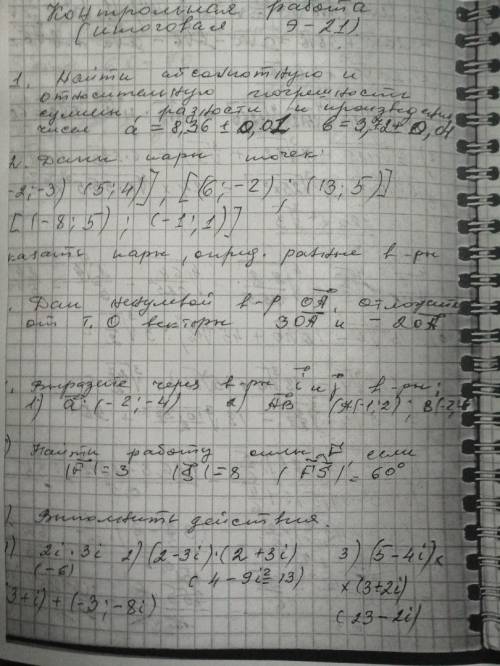 Контрольная работа
(итоговая 9-21)
1. Найти абсолютную и
относительную погрешность
суммы, разности и произведен.
чисел a = 8,36 ± 0,01 в = 3,72 ± 0,04
2. Даны пары точек:
-2;-3) (5;4)] ; [(6;-2) ; (13;5)]
[(-8;5) ; (-1;1)]
казать пары, опред. равные в-ры
. Дан ненулевой в-р OA, отложить
от т. O векторы 3OA и -2OA
. Выразите через в-ры i и j в-ры:
1) a (-2;-4) 2) AB (A(-1;2);
) Найти работу силы F, если
|F| = 3 |S| = 8 (FS) = 60°
). Выполнить действия.
1) 2i · 3i 2) (2-3i)·(2+3i) 3) (5-4i)×
(-6) (4-9i²=13) ×(3+2i)
3+i)+(-3;-8i) (23-2i)